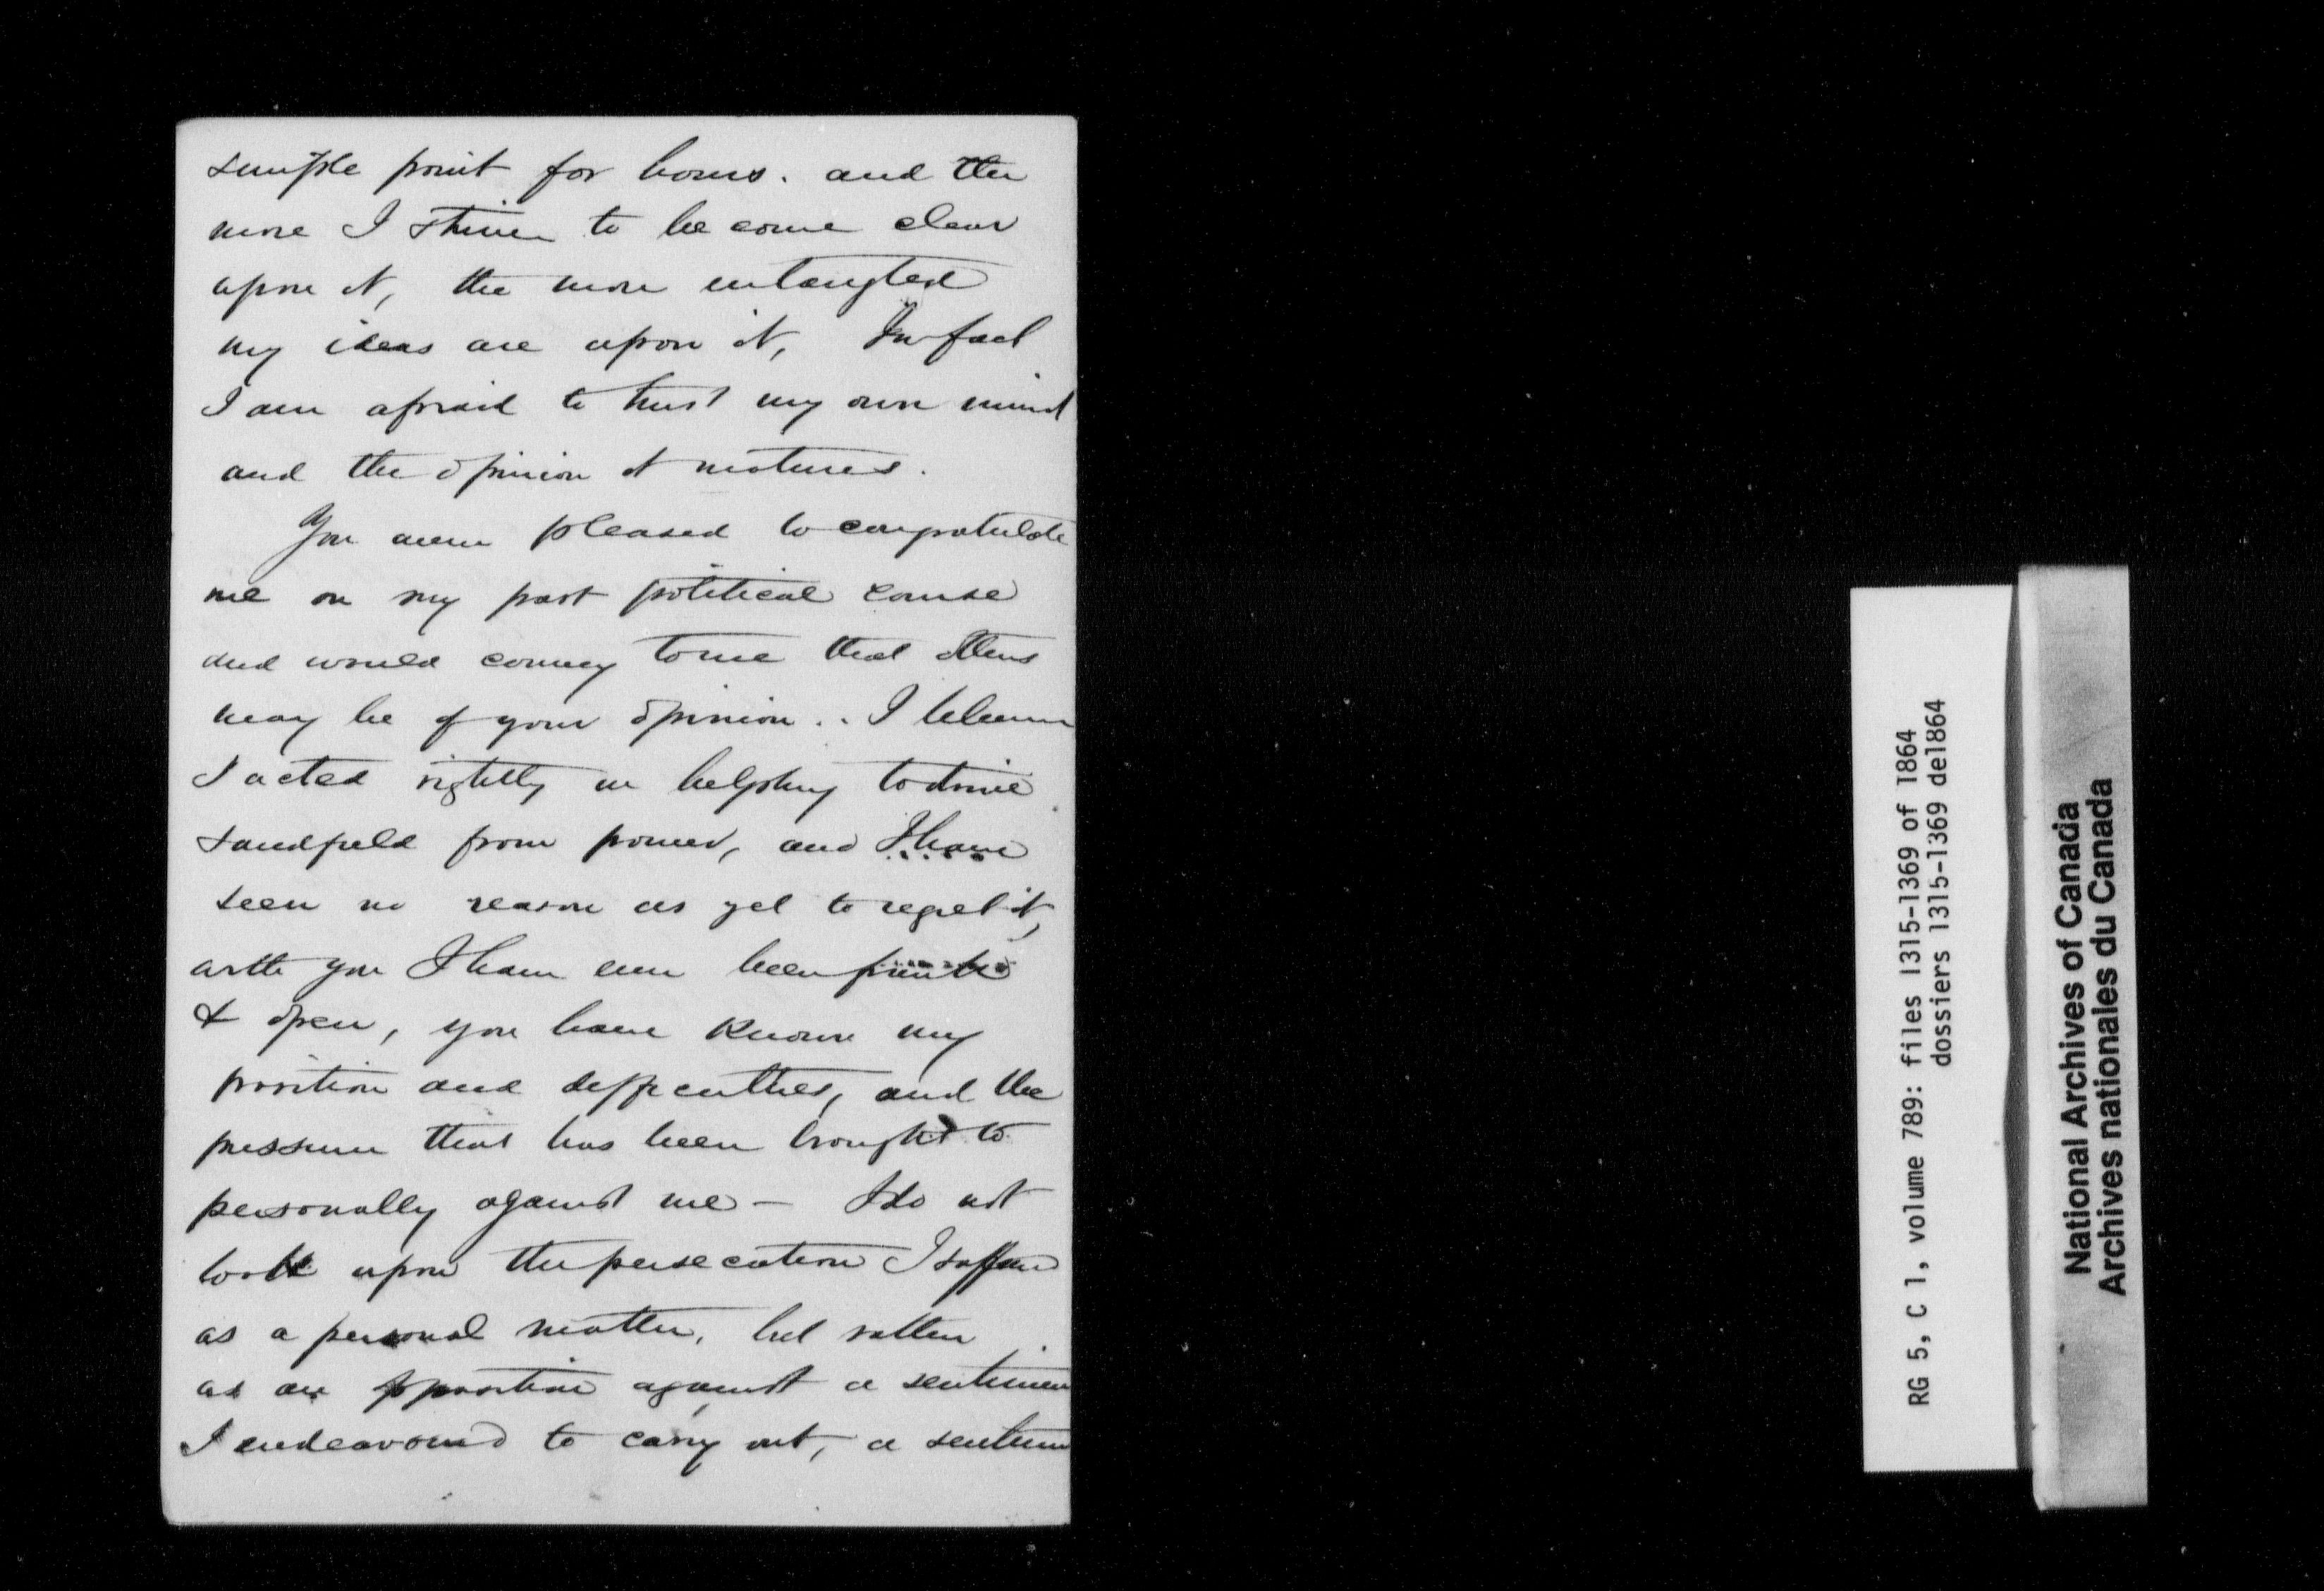 simple point for hours. and the
more I strive to become clear
upon it, the more entangled
my ideas are upon it, In fact
I am afraid to trust my own mind
and the opinion it matures.
You seem pleased to congratulate
me on my past political course
and would convey to me that others
may be of your opinion.. I believe
I acted rightly in helping to drive
Sandfield from power, and I have
seen no reason as yet to regret it,
with you I have ever been frank
& open, you have known my
position and difficulties, and the
pressure that has been brought to
personally against me — I do not
look upon the persecution I suffer
as a personal matter, but rather
as an opposition against a sentimen
I endeavoured to carry out, a sentim
RG 5, C 1, volume 789: files 1315-1369 of 1864
dossiers 1315-1369 de1864
National Archives of Canada
Archives nationales du Canada